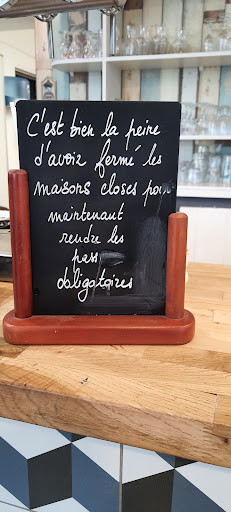 C'est bien la peine
d'avoir fermé les
maisons closes pour
maintenant
rendre les
pass
obligatoires